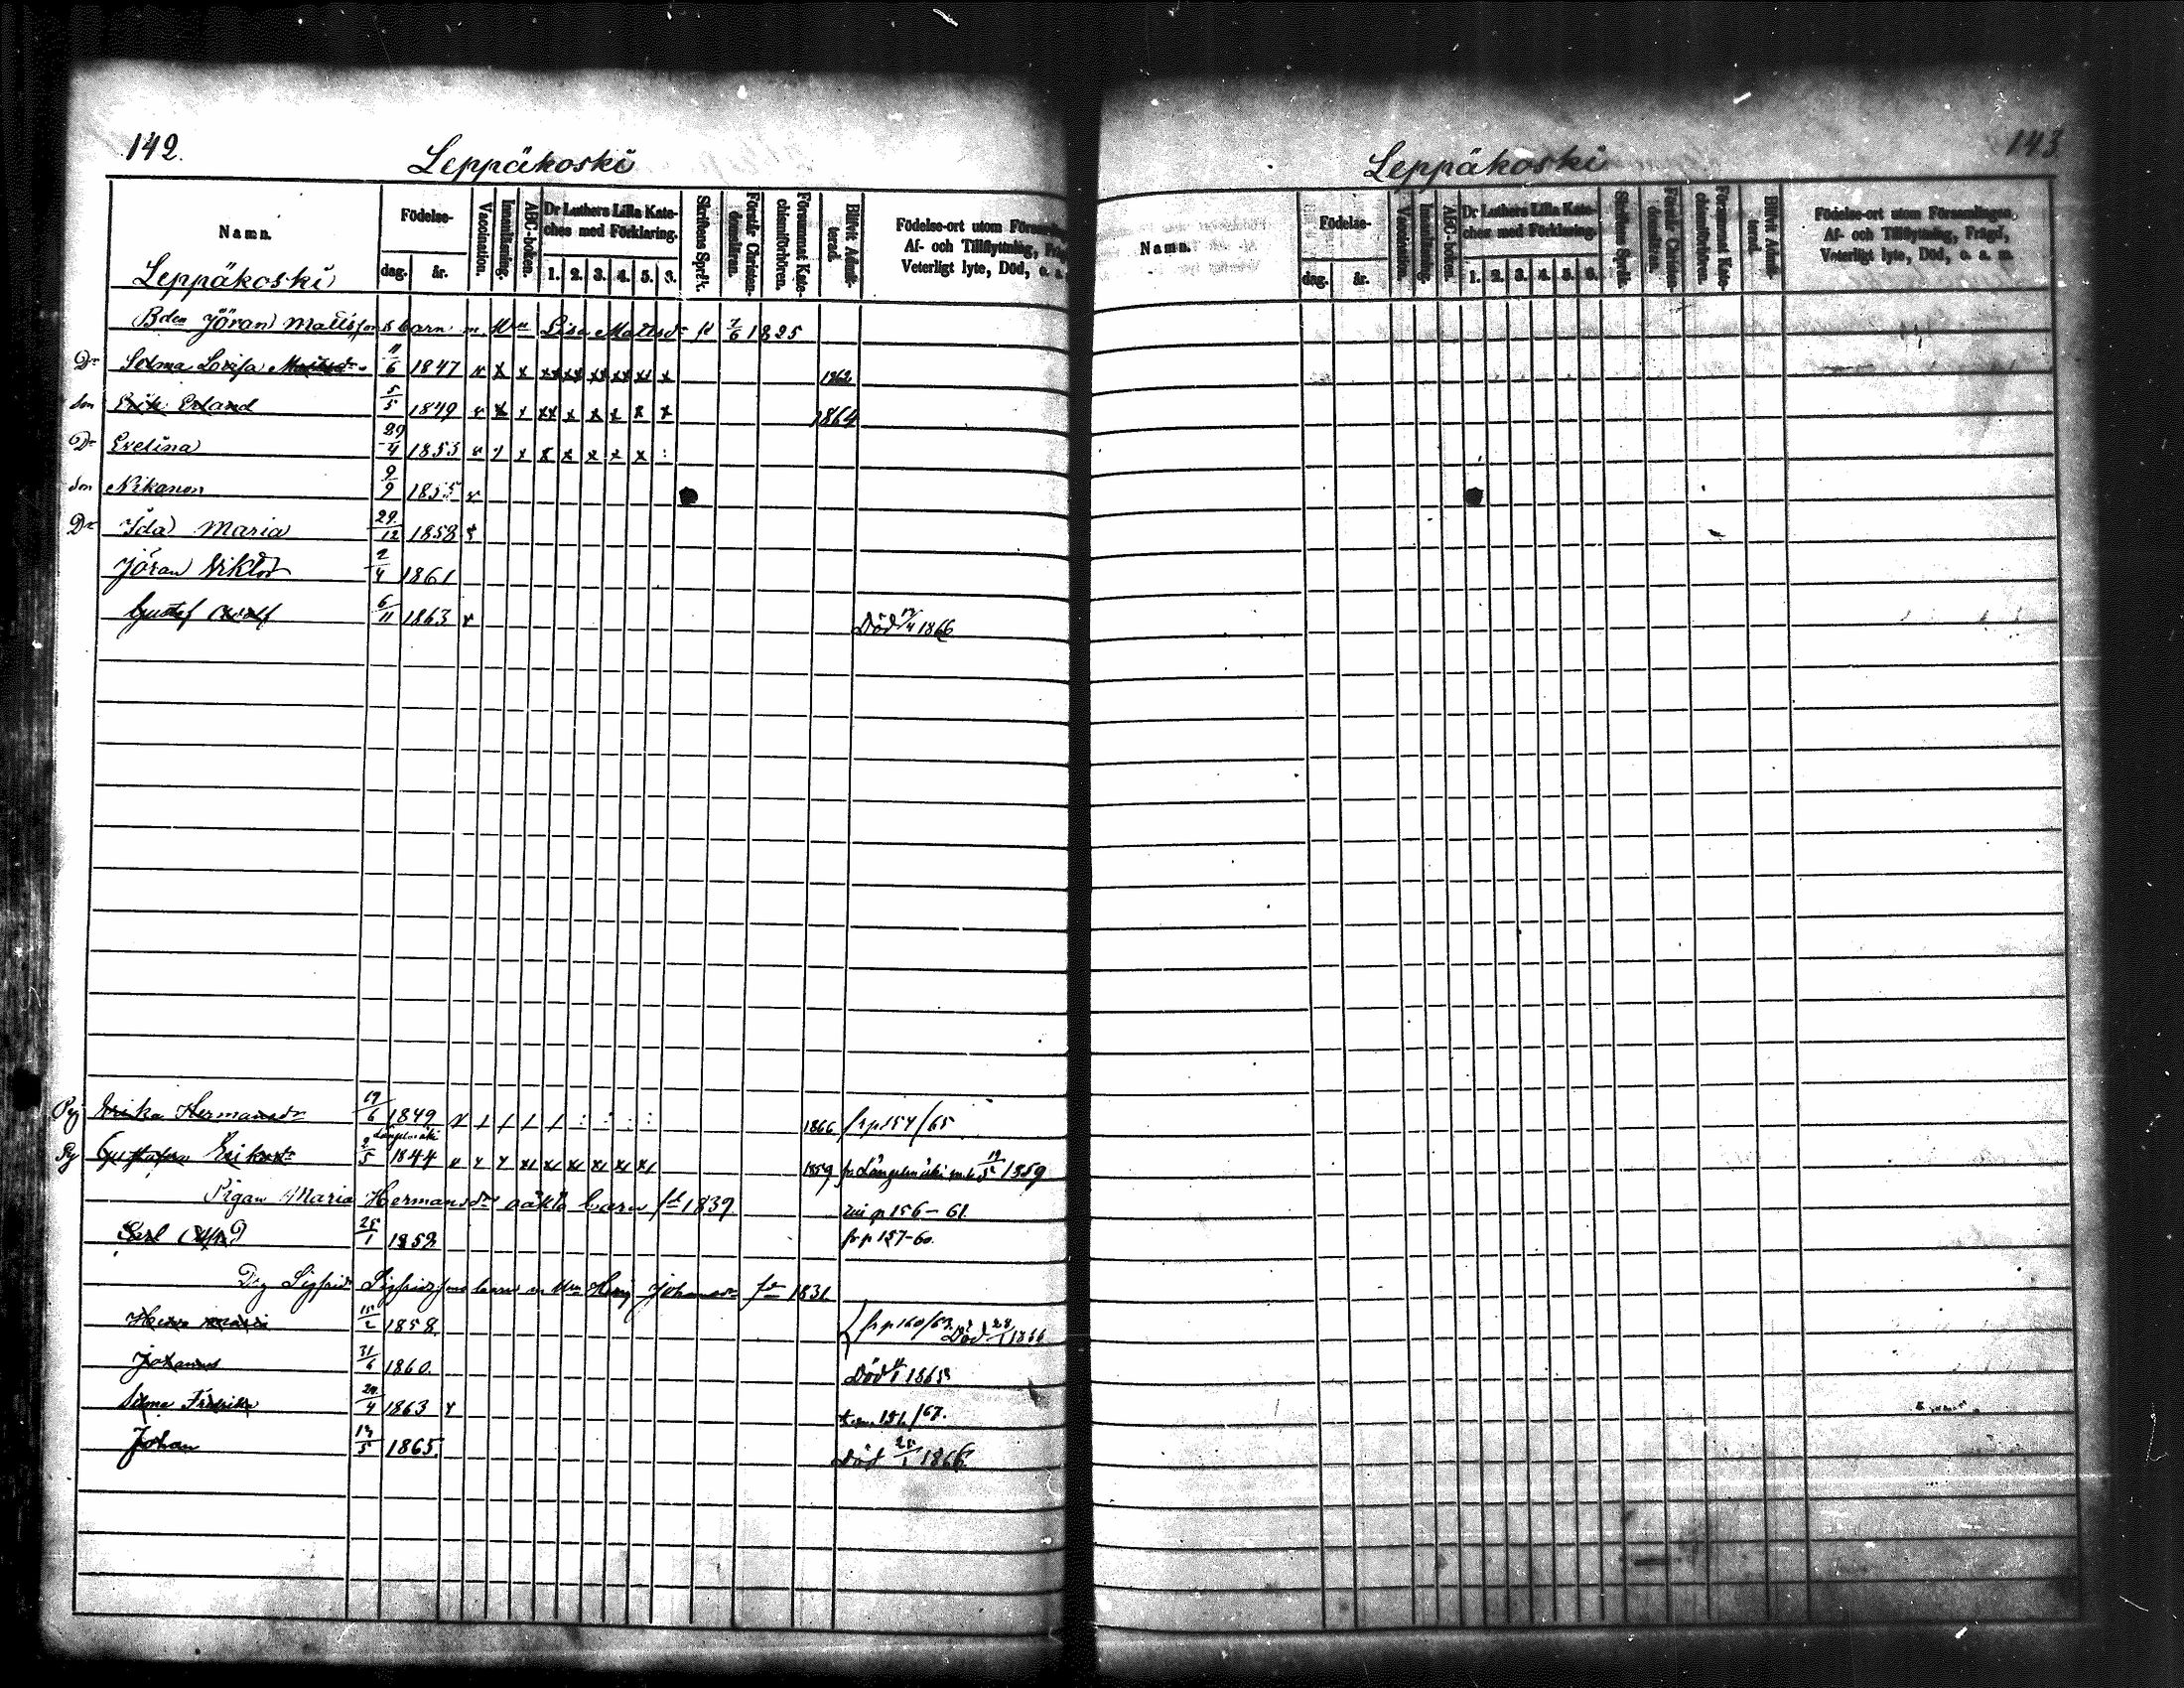 142.
Leppäkoski
Namn.
Födelse-
dag. år.
Vaccination.
Innanläsning.
ABC-boken.
Dr Luthers Lilla Kate-
ches med Förklaring.
1. 2. 3. 4. 5. 6.
Skriftens Språk.
Förstår Christen-
domsläran.
Försummat Kate-
chismiförhören.
Blifvit Admit-
terad.
Födelse-ort utom
Af- och Tillflyttning,
Veterligt lyte, Död, o. a.
Leppäkoski
Bden Jöran Mattssons barn m. Hu Lisa Mattsdr fd 7/6 1825
Dr Selma Lovisa 11/6 1847 1862
Son Erik Erland 5/5 1849 1864
Dr Evelina 29/4 1853
Son Nikanor 9/9 1855
Dr Ida Maria 29/12 1858
Jöran Viktor 2/4 1861
Gustef Adolf 6/11 1863 Död 1866
Erika Hermansdr 6 1849 1866 fr p 154/65
Längelmäki
Eriksdr 2/5 1844 1859 fr Längelmäki 1859
Pigan Maria Hermansdrs oäkta barn fd 1839 p 156-61
Carl 25/1 1859 fr p 157-60.
Sigfrid Sigfridssons barn m Hu Johansdr fd 1831
15/2 1858 fr p 160/63. Död 1866
Johannes 31/6 1860. Död 1865
Selma Fredrika 4 1863
Johan 5 1865 Död 1866
143
Leppäkoski
Namn.
Födelse-
dag. år.
Vaccination.
Innanläsning.
ABC-boken.
Dr Luthers Lilla Kate-
ches med Förklaring.
1. 2. 3. 4. 5. 6.
Skriftens Språk.
Förstår Christen-
domsläran.
Försummat Kate-
chismiförhören.
Blifvit Admit-
terad.
Födelse-ort utom Församlingen,
Af- och Tillflyttning, Frägd,
Veterligt lyte, Död, o. a. m.